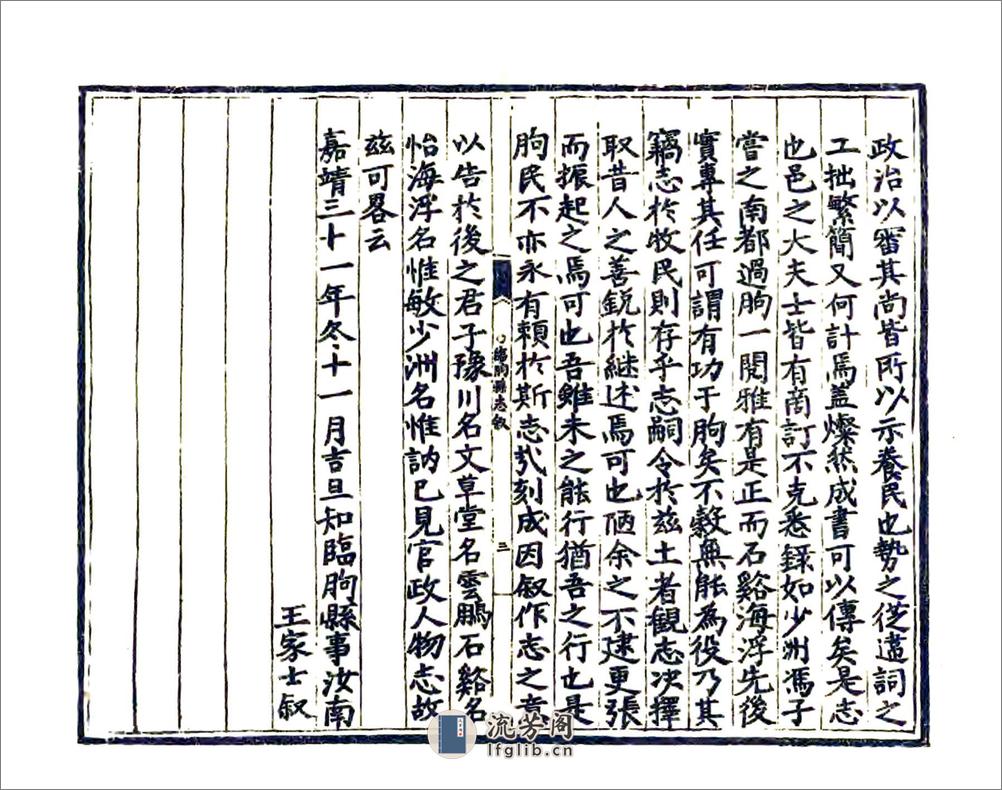 政治以審其尚皆所以示養民也勢之從違詞之
工拙繁簡又何計焉盖燦然成書可以傳矣是志
也邑之大夫士皆有商訂不克悉録如少洲馮子
嘗之南都過朐一閱雅有是正而石谿海浮先後
實專其任可謂有功于朐矣不穀無能為役乃其
竊志於牧民則存乎志嗣令於兹土者觀志决擇
取昔人之善銳於継述焉可也陋余之不逮更張
而振起之焉可也吾雖未之能行猶吾之行也是
朐民不亦永有頼於斯志哉刻成因叙作志之意
臨朐縣志叙
三
以告於後之君子豫川名文草堂名雲鵬石谿名
怡海浮名惟敏少洲名惟訥已見官政人物志故
兹可畧云
嘉靖三十一年冬十一月吉旦知臨朐縣事汝南
王家士叙
流芳阁
lfglib.cn